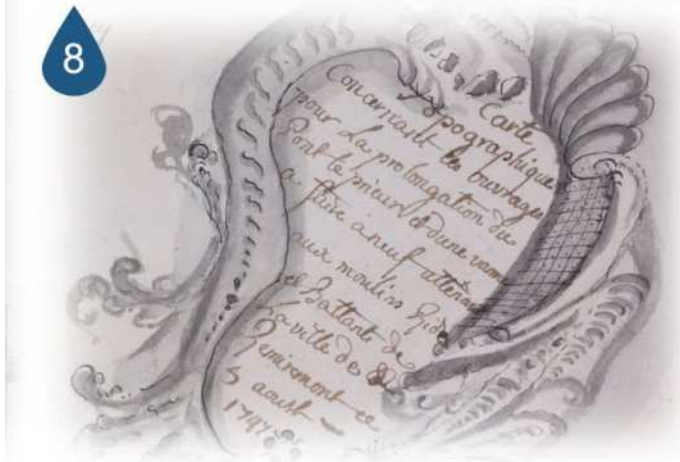 8
Carte
Topographique
Concernant les ouvrages
pour La prolongation du
Pont le prieur et d'une vanne
a faire à neuf attenant
aux moulins
et Battants de
La ville de
Remiremont ce
5 aoust
1747